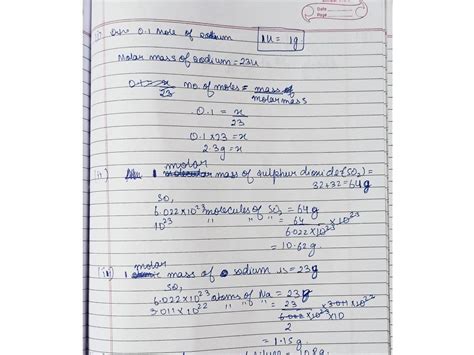 Date
Page
0.1 Mole of sodium
1u = 1g
Molar mass of sodium = 23u
no. of moles = mass of
23 molar mass
0.1 = x
23
0.1 x 23 = x
2.3g = x
molar
ii) 1 mass of sulphur dioxide (SO2) =
32+32 = 64g
SO,
6.022 x 10^23 molecules of SO2 = 64g
10^23 " " " = 64 x 10^23
6.022 x 10^23
= 10.62g
molar
iii) 1 mass of sodium is = 23g
SO,
6.022 x 10^23 atoms of Na = 23g
3.011 x 10^22 " " " = 23 x 3.011 x 10^22
6.022 x 10^23 x 10
2
= 1.15g